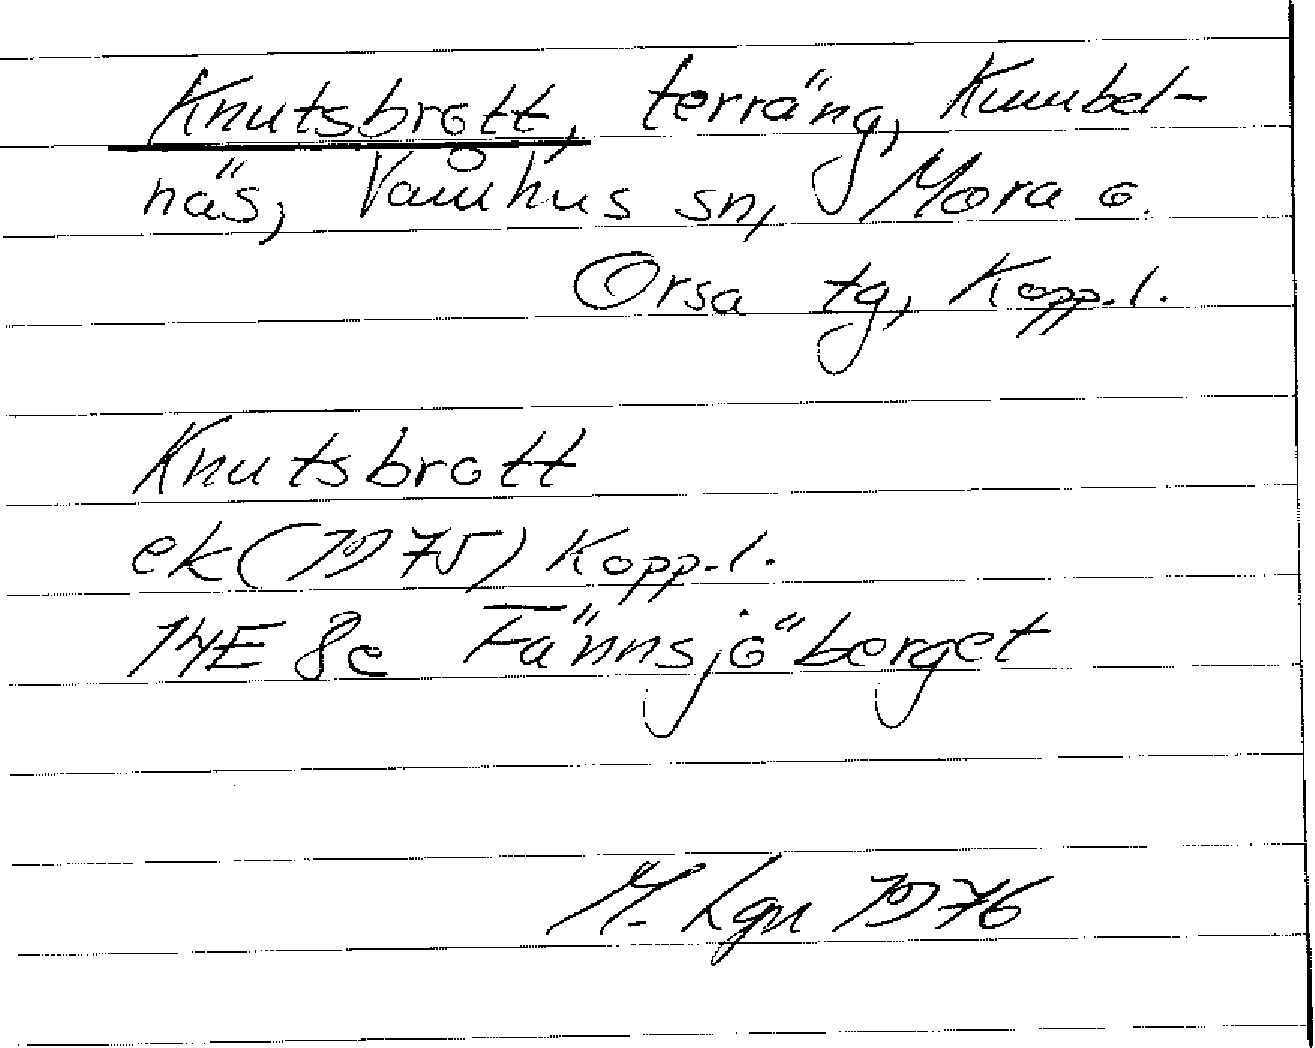 Knutsbrott, terräng, Kumbel-
näs, Våmhus sn, Mora o.
Orsa tg, Kopp. l.
Knutsbrott
ek (1975) Kopp. l.
14E 8c Fännsjöberget
M. Lgn 1976